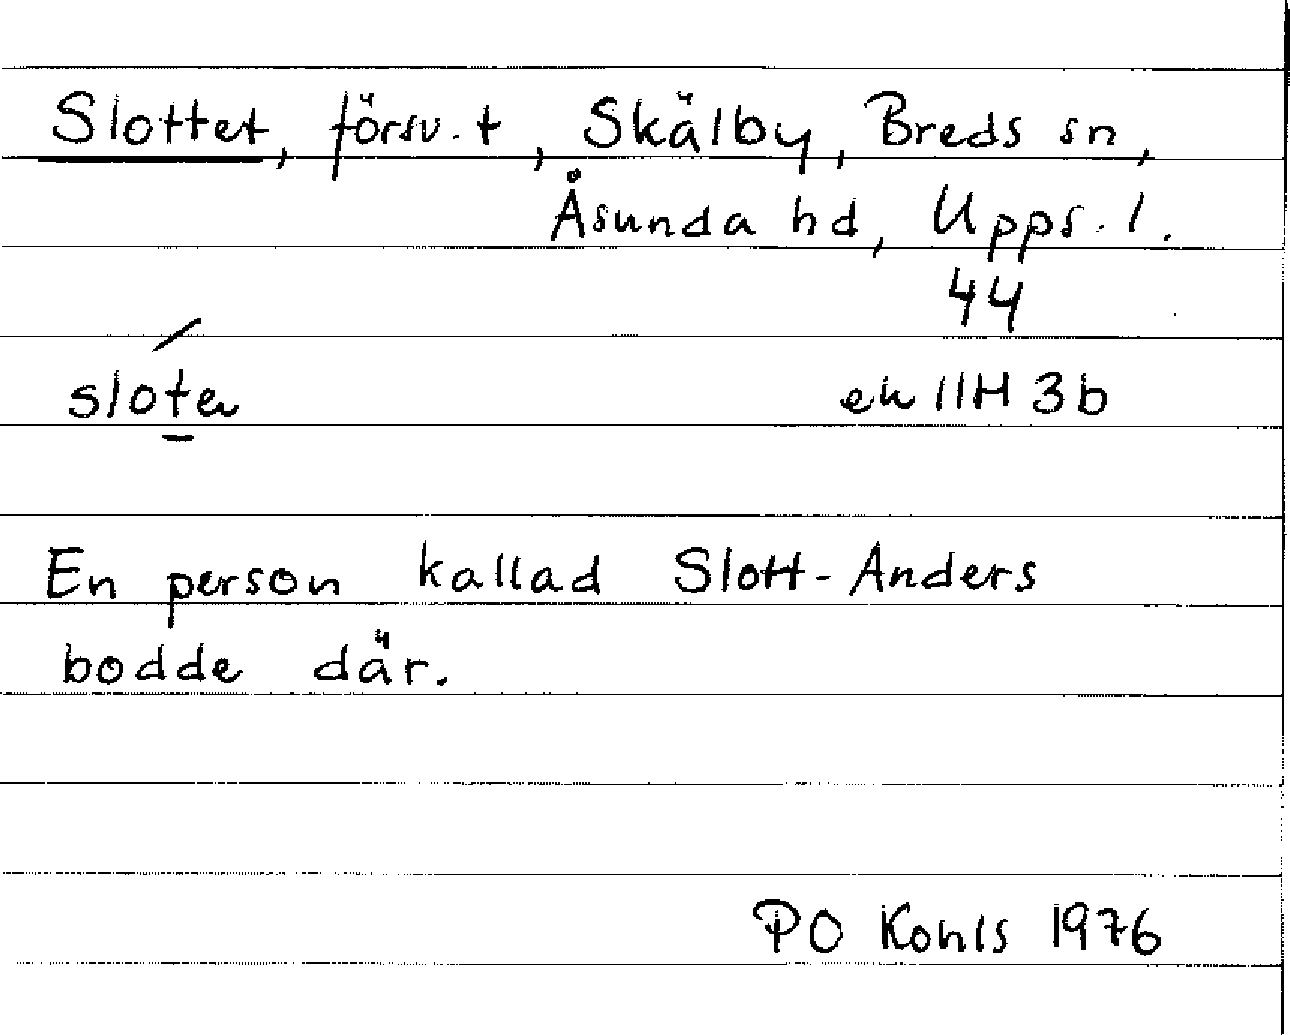 Slottet, försv. t, Skälby, Breds sn,
Åsunda hd, Upps. l.
44
sloter ek 11H 3b
En person kallad Slott-Anders
bodde där.
PO Kohls 1976